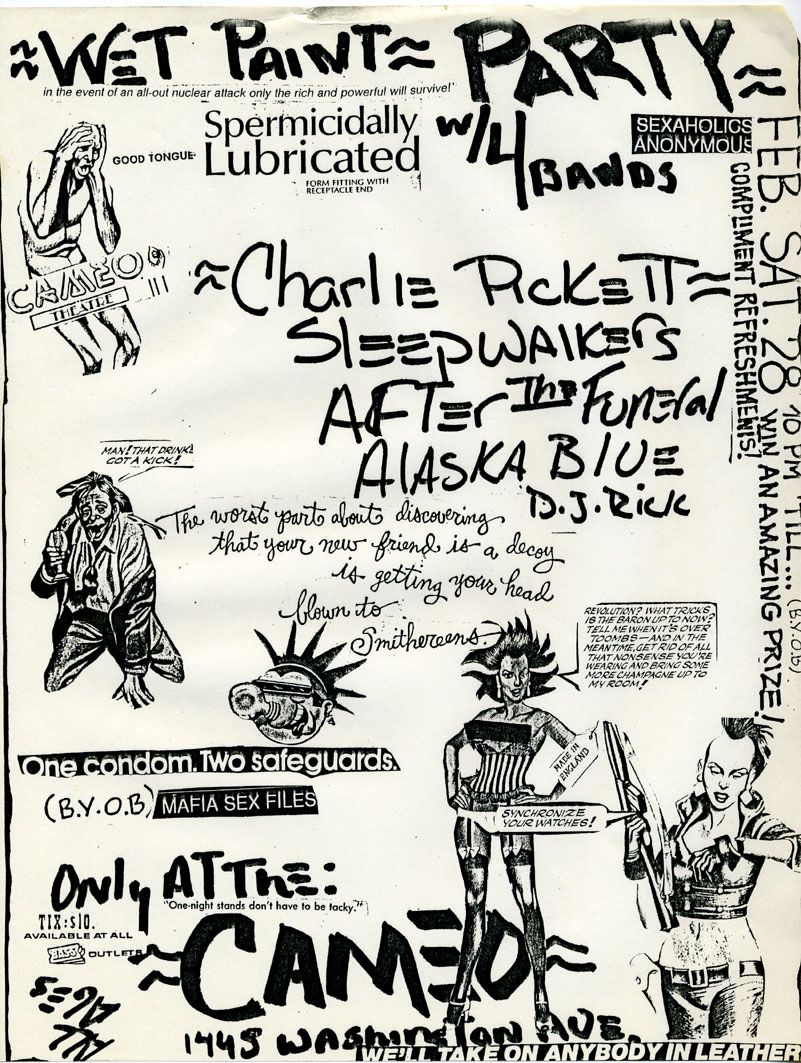 ≈ WET PAINT ≈ PARTY ≈
in the event of an all-out nuclear attack only the rich and powerful will survive!"
Spermicidally
Lubricated
FORM FITTING WITH
RECEPTACLE END
GOOD TONGUE
W/4
BANDS
SEXAHOLICS
ANONYMOUS
FEB. SAT. 28 10 PM 'TILL... (B.Y.O.B)
COMPLIMENT REFRESHMENTS!
WIN AN AMAZING PRIZE!
CAMEO
THEATRE
≈ Charlie Pickett ≈
SleepwAlkers
AFTer The Funeral
AlASKA BluE
D.J. Rick
MAN! THAT DRINK
GOT A KICK!
The worst part about discovering
that your new friend is a decoy
is getting your head
blown to
Smithereens.
REVOLUTION? WHAT TRICKS
IS THE BARON UP TO NOW?
TELL ME WHEN IT'S OVER
TOOMBS—AND IN THE
MEANTIME, GET RID OF ALL
THAT NONSENSE YOU'RE
WEARING AND BRING SOME
MORE CHAMPAGNE UP TO
MY ROOM!
MADE IN
ENGLAND
One condom. Two safeguards.
(B.Y.O.B) MAFIA SEX FILES
SYNCHRONIZE
YOUR WATCHES!
Only AT The:
"One-night stands don't have to be tacky."
TIX: $10.
AVAILABLE AT ALL
BASS OUTLETS
≈ CAMEO ≈
All
Ages
1445 WAShingTon AVE.
WE'LL TAKE ON ANYBODY IN LEATHER